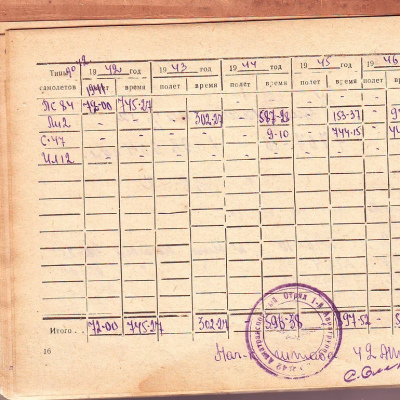 Типы до 42 19 42 год 19 43 год 19 44 год 19 45 год 19 46
самолетов 1941 полет время полет время полет время полет время полет
ПС 84 72-00 745-27 - - - - - - -
Ли2 - - - 302-27 - 587-28 - 153-37
С-47 - - - - - 9-10 - 744-15
Ил12 - - - - - - - - -
Итого . . 72-00 745-27 302-27 596-38 897-52 -
16
Отряд 1-й Авиагруппы
42